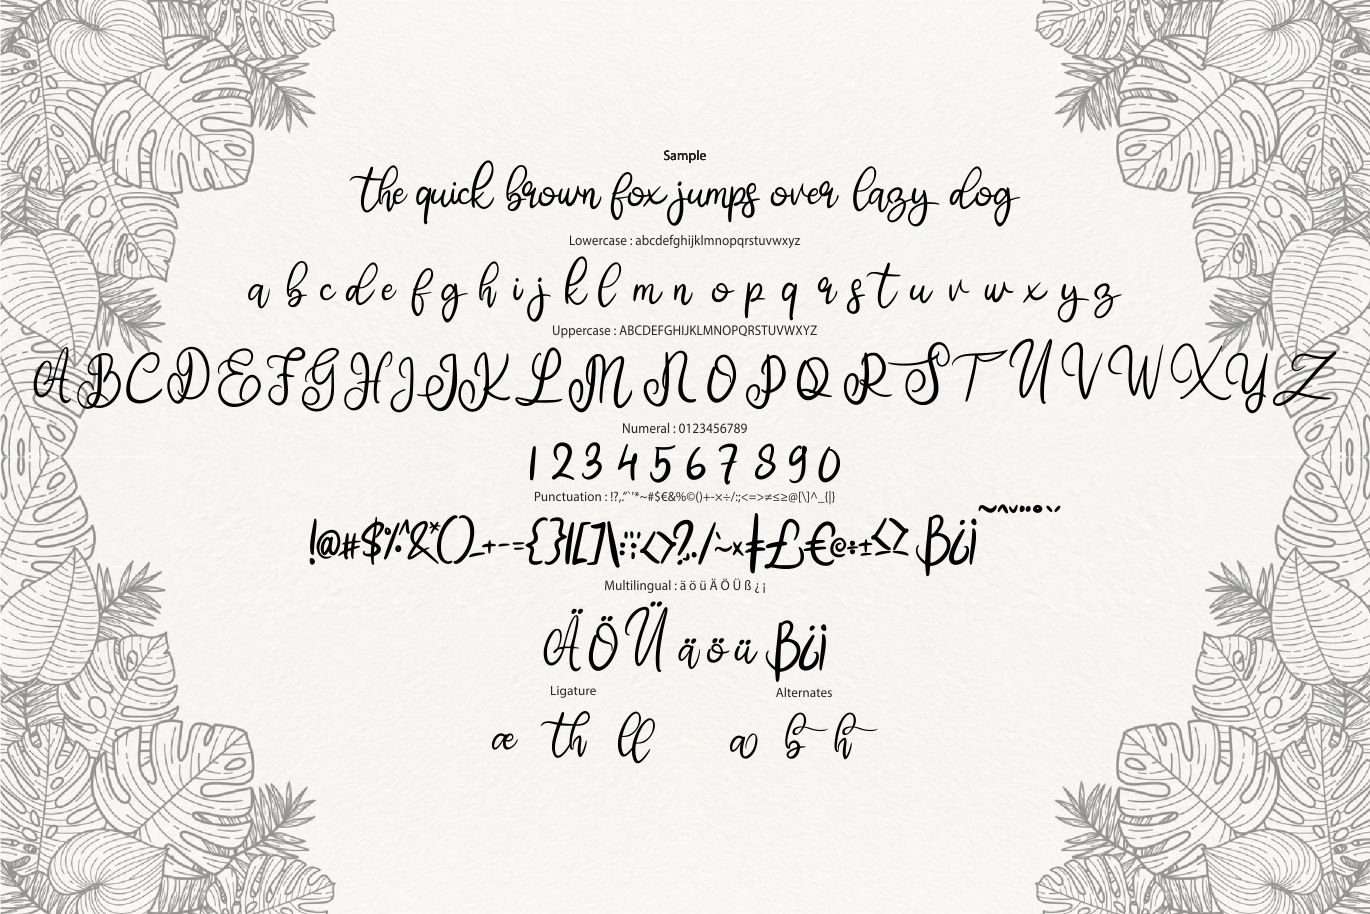 Sample
the quick brown fox jumps over lazy dog
Lowercase : abcdefghijklmnopqrstuvwxyz
a b c d e f g h i j k l m n o p q r s t u v w x y z
Uppercase : ABCDEFGHIJKLMNOPQRSTUVWXYZ
A B C D E F G H I J K L M N O P Q R S T U V W X Y Z
Numeral : 0123456789
1 2 3 4 5 6 7 8 9 0
Punctuation : !?,.”“‘’*~#$€&%©()+-×÷/:;<=>≠≤≥@[\]^_{|}
!@#$%^&*()_+-={}|[]\:;<>?,./~×‡£€@÷±≤≥ ß¿¡
Multilingual : ä ö ü Ä Ö Ü ß ¿ ¡
Ä Ö Ü ä ö ü ß¿¡
Ligature Alternates
æ th ll a b h